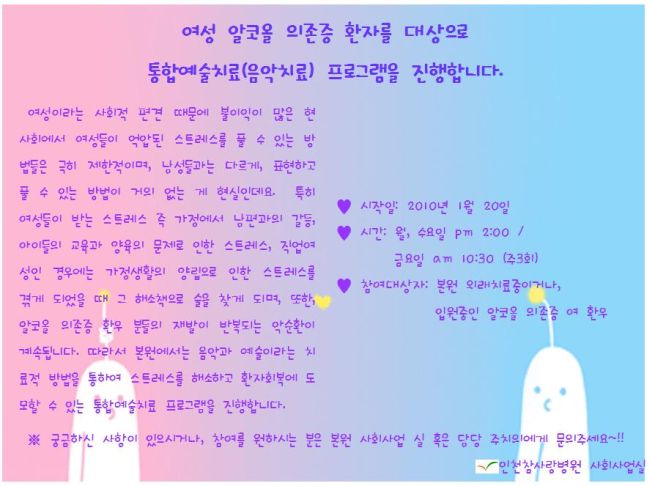 여성 알코올 의존증 환자를 대상으로
통합예술치료(음악치료) 프로그램을 진행합니다.
여성이라는 사회적 편견 때문에 불이익이 많은 현
사회에서 여성들이 억압된 스트레스를 풀 수 있는 방
법들은 극히 제한적이며, 남성들과는 다르게, 표현하고
풀 수 있는 방법이 거의 없는 게 현실인데요. 특히
여성들이 받는 스트레스 즉 가정에서 남편과의 갈등,
아이들의 교육과 양육의 문제로 인한 스트레스, 직업여
성인 경우에는 가정생활의 양립으로 인한 스트레스를
겪게 되었을 때 그 해소책으로 술을 찾게 되며, 또한,
알코올 의존증 환우 분들의 재발이 반복되는 악순환이
계속됩니다. 따라서 본원에서는 음악과 예술이라는 치
료적 방법을 통하여 스트레스를 해소하고 환자회복에 도
모할 수 있는 통합예술치료 프로그램을 진행합니다.
♥ 시작일: 2010년 1월 20일
♥ 시간: 월, 수요일 pm 2:00 /
금요일 am 10:30 (주3회)
♥ 참여대상자: 본원 외래치료중이거나,
입원중인 알코올 의존증 여 환우
※ 궁금하신 사항이 있으시거나, 참여를 원하시는 분은 본원 사회사업 실 혹은 담당 주치의에게 문의주세요~!!
인천참사랑병원 사회사업실